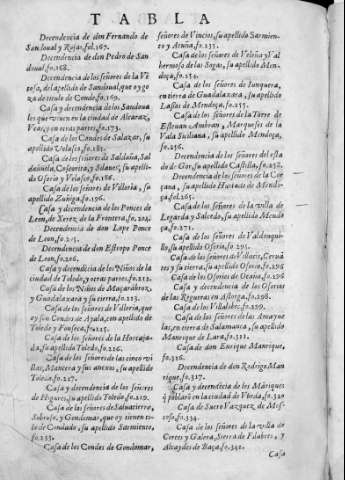 TABLA
Decendencia de don Fernando de
Sandoual y Rojas, fol. 167.
Decendencia de don Pedro de San
doual, fo. 168.
Decendencia de los señores de la Vē
tosa, del apellido de Sandoual, que oy go
za de titulo de Conde, fo. 169.
Casa y decendencia de los Sandoua
les que viuen en la ciudad de Alcaraz,
y en otras partes, fo. 173.
Casa de los Condes de Salazar, su
apellido Velasco, fo. 181.
Casa de los señores de Saldaña, Sal
su apelli
do Osorio y Velasco, fo. 186.
Casa de los señores de Villoria, su
apellido Zuñiga, fo. 196.
Casa y decendencia de los Ponces de
Leon, de Xerez de la Frontera, fo. 204.
Decendencia de don Lope Ponce
de Leon, fo. 215.
Decendencia de don Estropo Ponce
de Leon, fo. 206.
Casa y decendencia de los Niños de la
ciudad de Toledo, y otras partes, fo. 212.
Casa de los Niños de Maçarábroz,
y Guadalaxara y su tierra, fo. 223.
Casa de los señores de Villoria, que
oy son Condes de Ayala, con apellido de
Toledo y Fonseca, fo. 225.
Casa de los señores de la Horcaja-
da, su apellido Toledo, fo. 226.
Casa de los señores de las cinco vi
llas, Mancera y sus anexos, su apellido
Toledo, fo. 227.
Casa y decendencia de los señores
de Higares, su apellido Toledo, fo. 229.
Casa de los señores de Saluatierra,
Sobroso, y Gondomar, que oy tienen titu-
lo de Condado, su apellido Sarmiento,
fo. 233.
Casa de los Condes de Gondomar,
señores de Vincios, su apellido Sarmien-
to y Acuña, fo. 235.
Casa de los señores de Veleña y Val
hermoso de las Sogas, su apellido Men-
doça, fo. 254.
Casa de los señores de Iunquera,
en tierra de Guadalaxara, su apellido
Lasso de Mendoça, fo. 255.
Casa de los señores de la Torre de
Esteuan Ambran, Marqueses de la
Vala Siciliana, su apellido Mendoça,
fo. 256.
Decendencia de los señores del esta
do de Gor, su apellido Castilla, fo. 257.
Decendencia de los señores de la Cor
çana, su apellido Hurtado de Mendo-
ça, fol. 265.
Casa de los señores de la villa de
Legarda y Salcedo, su apellido Mendo
ça, fo. 271.
Casa de los señores de Valdonqui-
llo, su apellido Osorio, fo. 291.
Casa de los señores de Villacis, Cerua
tes y su tierra, su apellido Osorio, fo. 295.
Casa de los Osorios de Ocaña, fo. 296
Casa y decendencia de los Osorios
de las Regueras en Astorga, fo. 298.
Casa de los Villalobos, fo. 299.
Casa de los señores de las Amayue
las, en tierra de Salamanca, su apellido
Manrique de Lara, fo. 321.
Casa de don Enrique Manrique,
fo. 326.
Decendencia de don Rodrigo Man
rique, fo. 327.
Casa y decendencia de los Māriques
q̄ poblarō en la ciudad de Vbeda, fo. 329
Casa de Suero Vazquez de Mos-
coso, fo. 334.
Casa de los señores de la villa de
Ceres y Galera, Sierra de Filabres, y
Alcaydes de Baça, fo. 342.
Casa